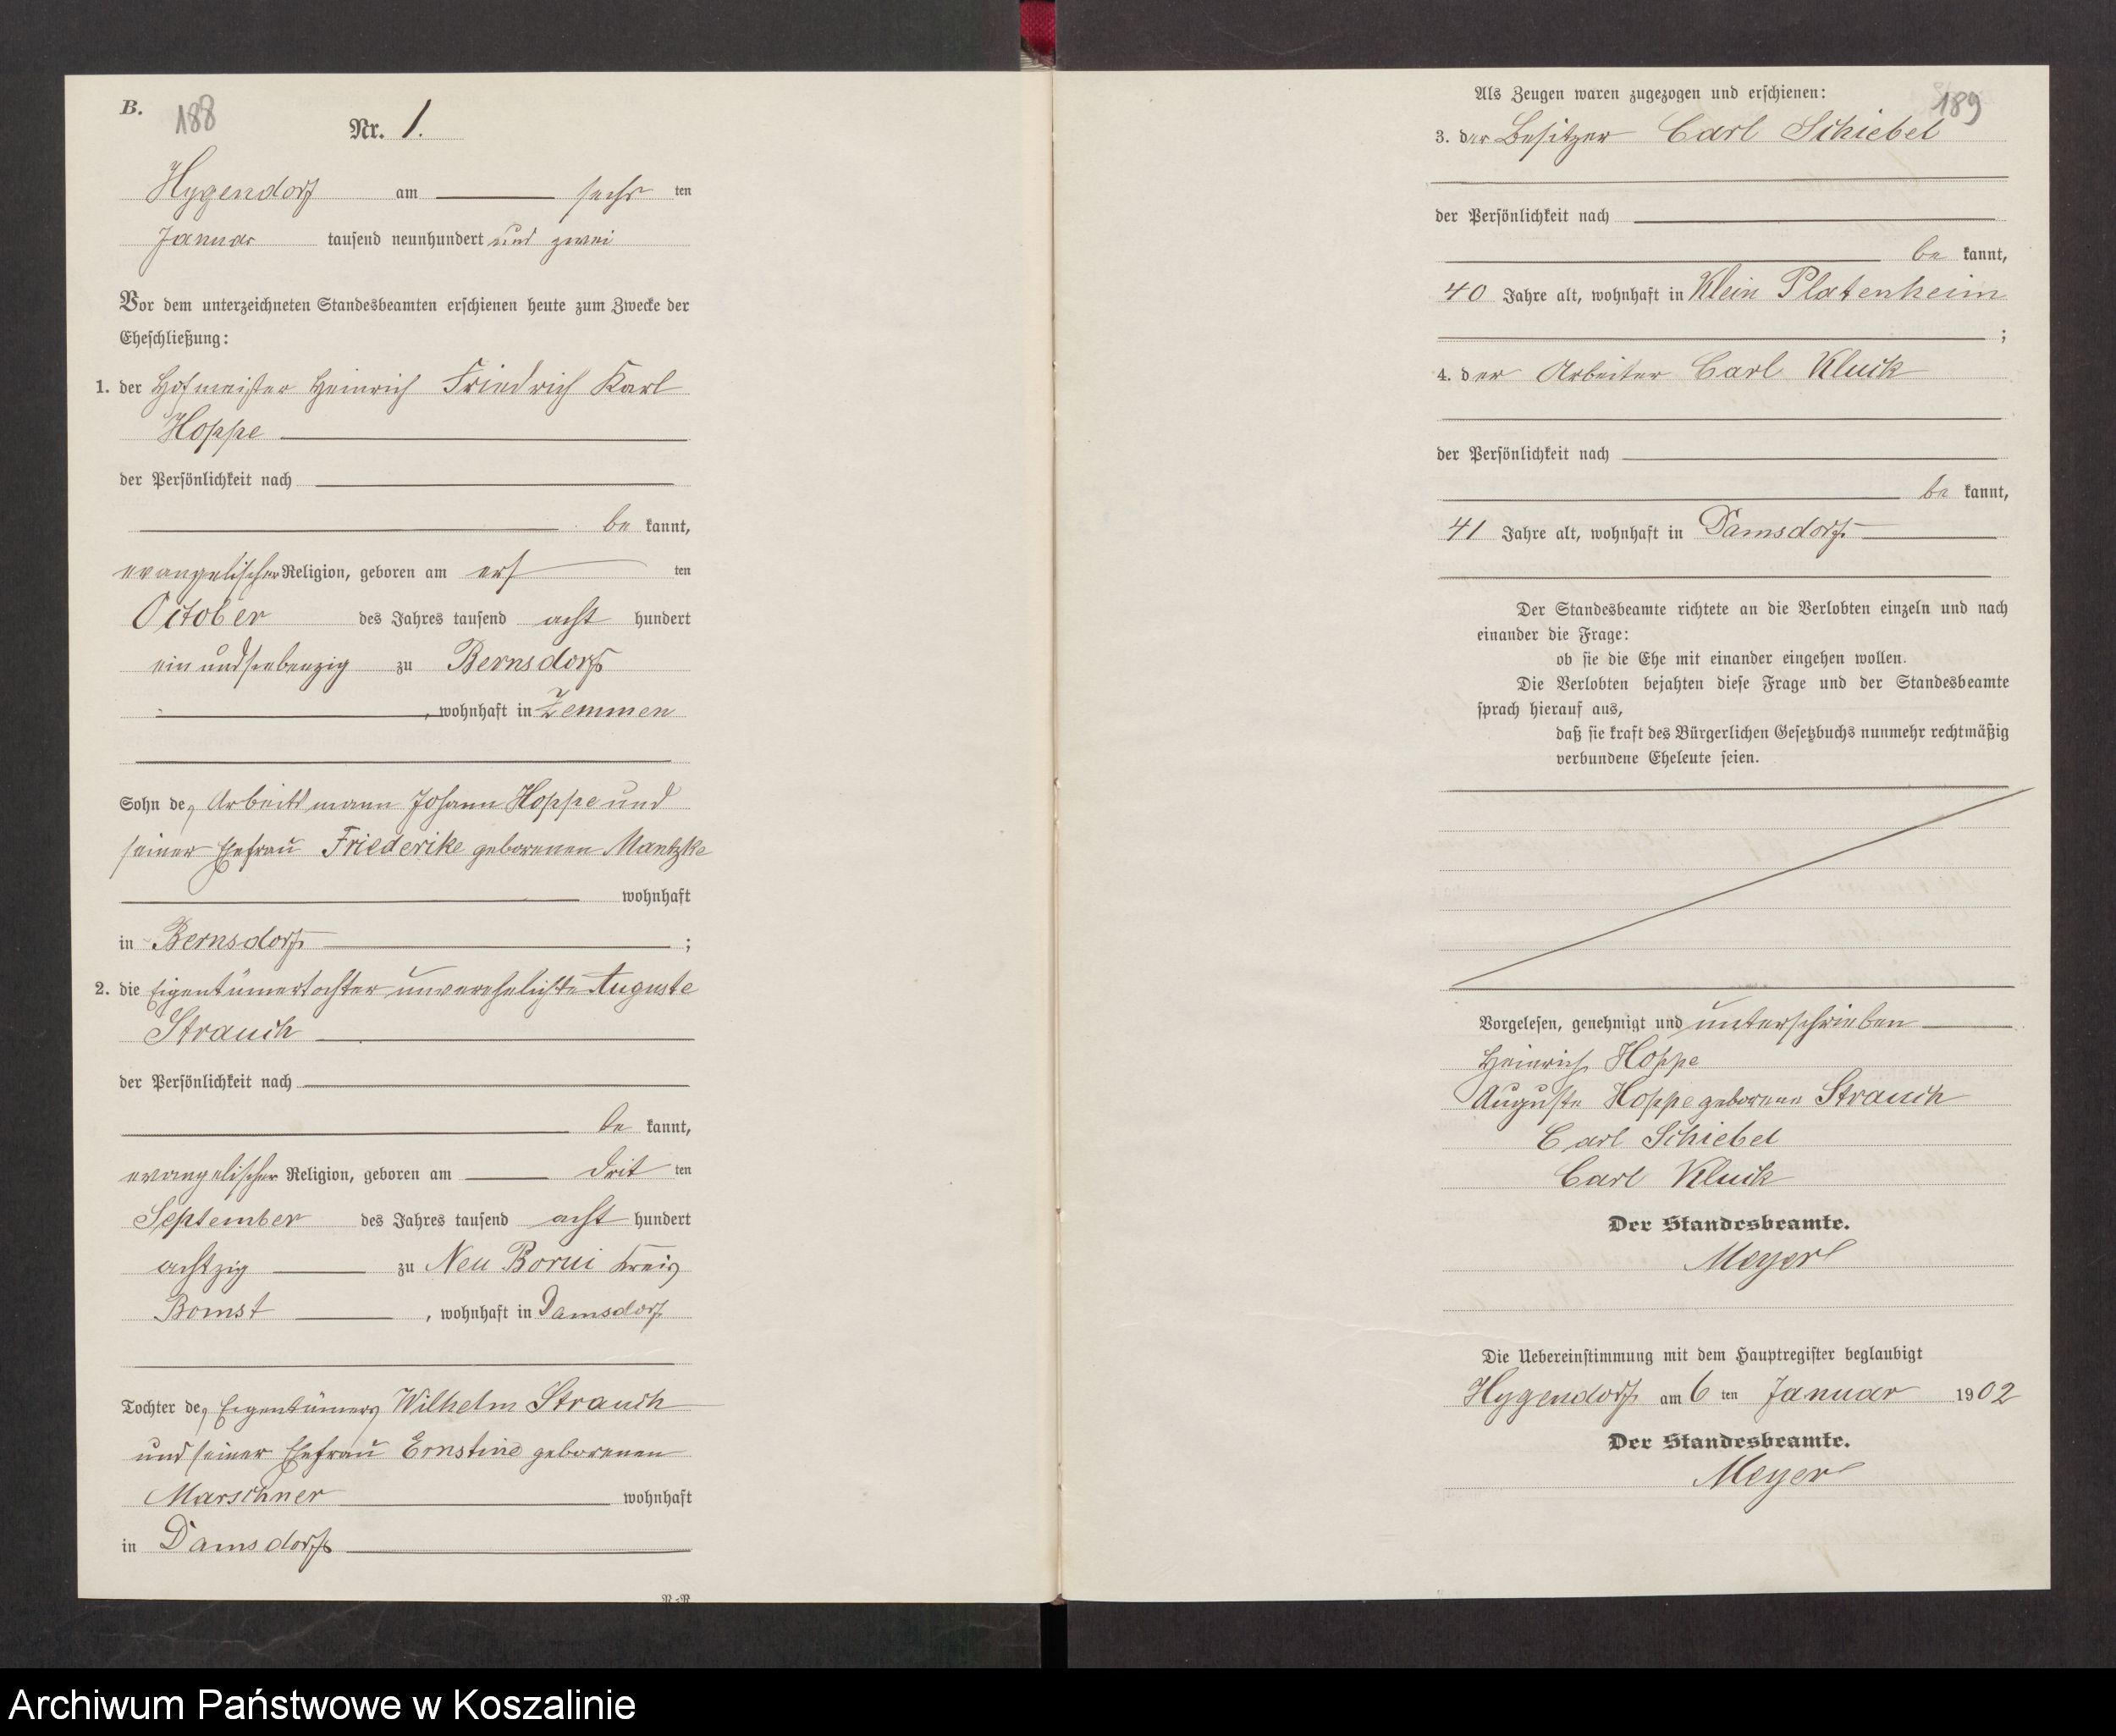 B.
188
Nr. 1.
Hygendorf am sechs ten
Januar tausend neunhundert und zwei
Vor dem unterzeichneten Standesbeamten erschienen heute zum Zwecke der
Eheschließung:
1. der Hofmeister Heinrich Friedrich Karl
Hoppe
der Persönlichkeit nach
be kannt,
evangelischer Religion, geboren am ers ten
October des Jahres tausend acht hundert
ein und siebenzig zu Bernsdorf
, wohnhaft in Zemmen
Sohn des Arbeitsmann Johann Hoppe und
seiner Ehefrau Friederike geborenen Mantzke
wohnhaft
in Bernsdorf ;
2. die Eigentümertochter unverehelichte Auguste
Strauch
der Persönlichkeit nach
be kannt,
evangelischer Religion, geboren am drit ten
September des Jahres tausend acht hundert
achtzig zu Neu Borui Kreis
Bomst , wohnhaft in Damsdorf
Tochter des Eigentümers Wilhelm Strauch
und seiner Ehefrau Ernstine geborenen
Marschner wohnhaft
in Damsdorf
189
Als Zeugen waren zugezogen und erschienen:
3. der Besitzer Carl Schiebel
der Persönlichkeit nach
be kannt,
40 Jahre alt, wohnhaft in Klein Platenheim
;
4. der Arbeiter Carl Kluck
der Persönlichkeit nach
be kannt,
41 Jahre alt, wohnhaft in Damsdorf
Der Standesbeamte richtete an die Verlobten einzeln und nach
einander die Frage:
ob sie die Ehe mit einander eingehen wollen.
Die Verlobten bejahten diese Frage und der Standesbeamte
sprach hierauf aus,
daß sie kraft des Bürgerlichen Gesetzbuchs nunmehr rechtmäßig
verbundene Eheleute seien.
Vorgelesen, genehmigt und unterschrieben
Heinrich Hoppe
Auguste Hoppe geborene Strauch
Carl Schiebel
Carl Kluck
Der Standesbeamte.
Meyer
Die Uebereinstimmung mit dem Hauptregister beglaubigt
Hygendorf am 6 ten Januar 1902
Der Standesbeamte.
Meyer
Archiwum Państwowe w Koszalinie